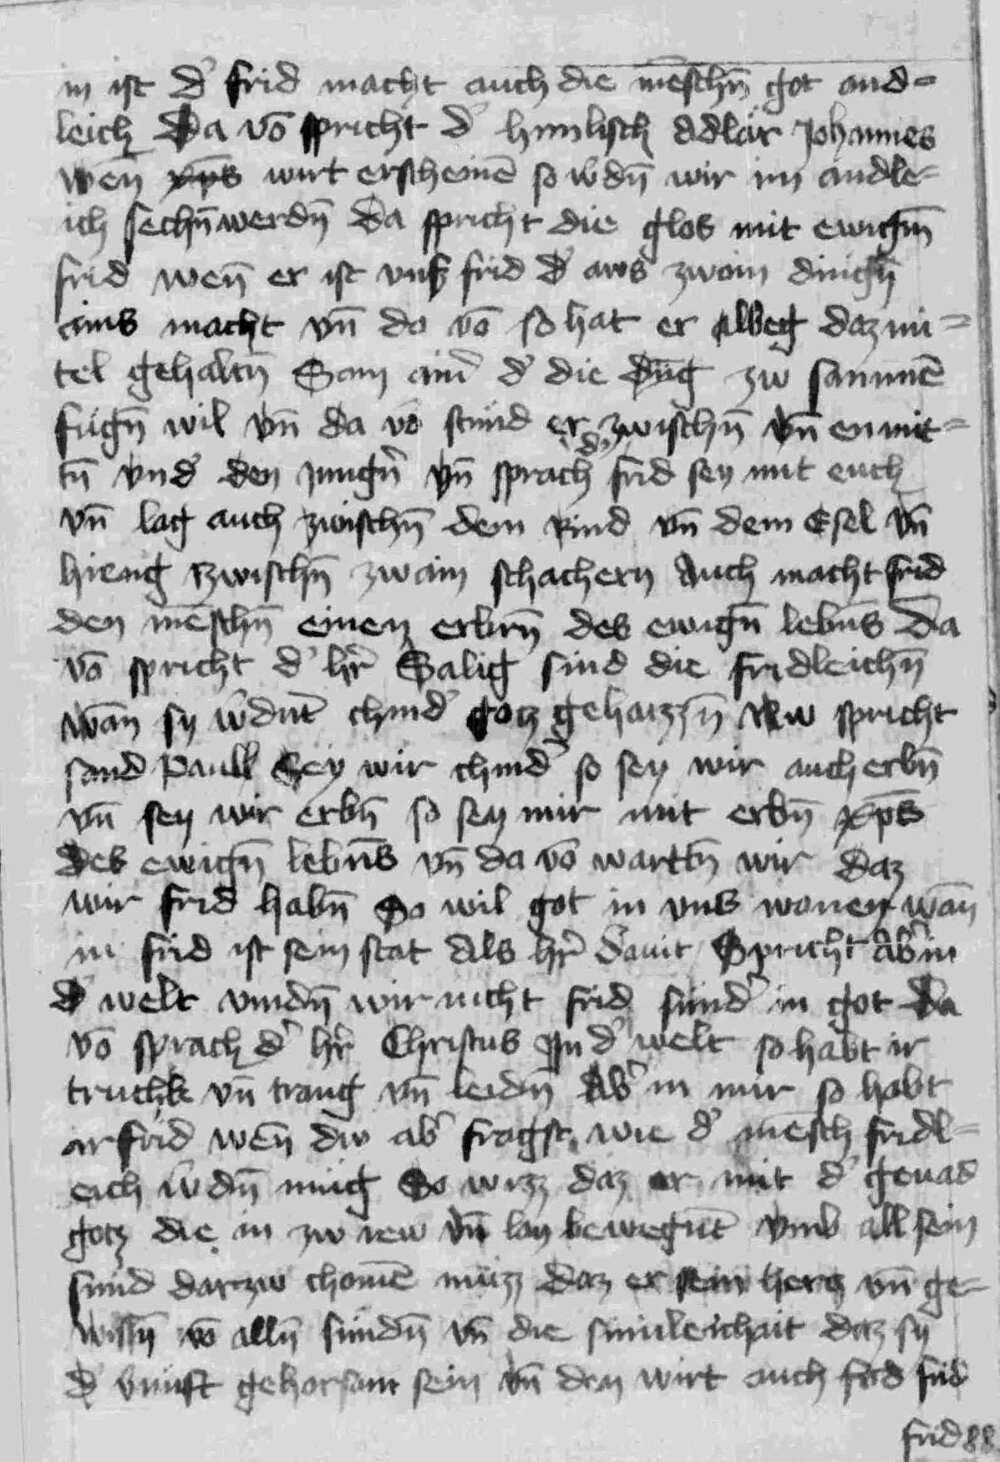 in ist d' frid macht auch die mēschn̄ got and=
leich Da vō spricht d' himlisch adlar Johannes
wen̄ xp̄s wirt erscheinē so w'dn̄ wir im andle=
ich sechn̄ werdn̄ Da spricht die glos mit ewign̄
frid wen̄ er ist vnß frid d' aws zwain dingn̄
ains macht vn̄ do vō so hat er albeg daz mi=
tel gehaltn̄ Sam ain' d' die dūg zw sammē
fügn̄ wil vn̄ da vō stund er zwischn̄ vn̄ enmit=
tn̄ vnd' den jungn̄ vn̄ sprach d' frid sey mit euch
vn̄ lag auch zwischn̄ dem Rind vn̄ dem Esel vn̄
hieng tzwischn̄ zwain schachern Auch macht frid
den mēschn̄ einen erbn̄ des ewign̄ lebn̄s Da
vō spricht d' h'r Salig sind die fridleichn̄
wān sy w'dnt chind' gotz gehaizzn̄ Nw spricht
sand Paull Sey wir chind' so sey wir auch erbn̄
vn̄ sey wir erbn̄ so sey mir mit erbn̄ xp̄s
des ewign̄ lebn̄s vn̄ da vō wartn̄ wir daz
wir frid habn̄ So wil got in vns wonen wān
in frid ist sein stat Als h'r dauit Spricht Ab' in
d' welt vindn̄ wir nicht frid sund' in got Da
vō sprach d' h'r Christus In d' welt so habt ir
vn̄ vn̄ leidn̄ Ab' in mir so habt
ir frid wen̄ dw ab' fragst wie d' mēsch fridl=
eich w'dn̄ müg So wizz daz er mit d' genad
gotz die in zw rew vn̄ lay bewegūt vmb all sein
sund darzw chomē müzz daz er sein hercz vn̄ ge=
wissn̄ vō alln̄ sündn̄ vn̄ die sinleichait daz sy
d' vnuft gehorsam sein vn̄ den wirt auch frid
frid 88